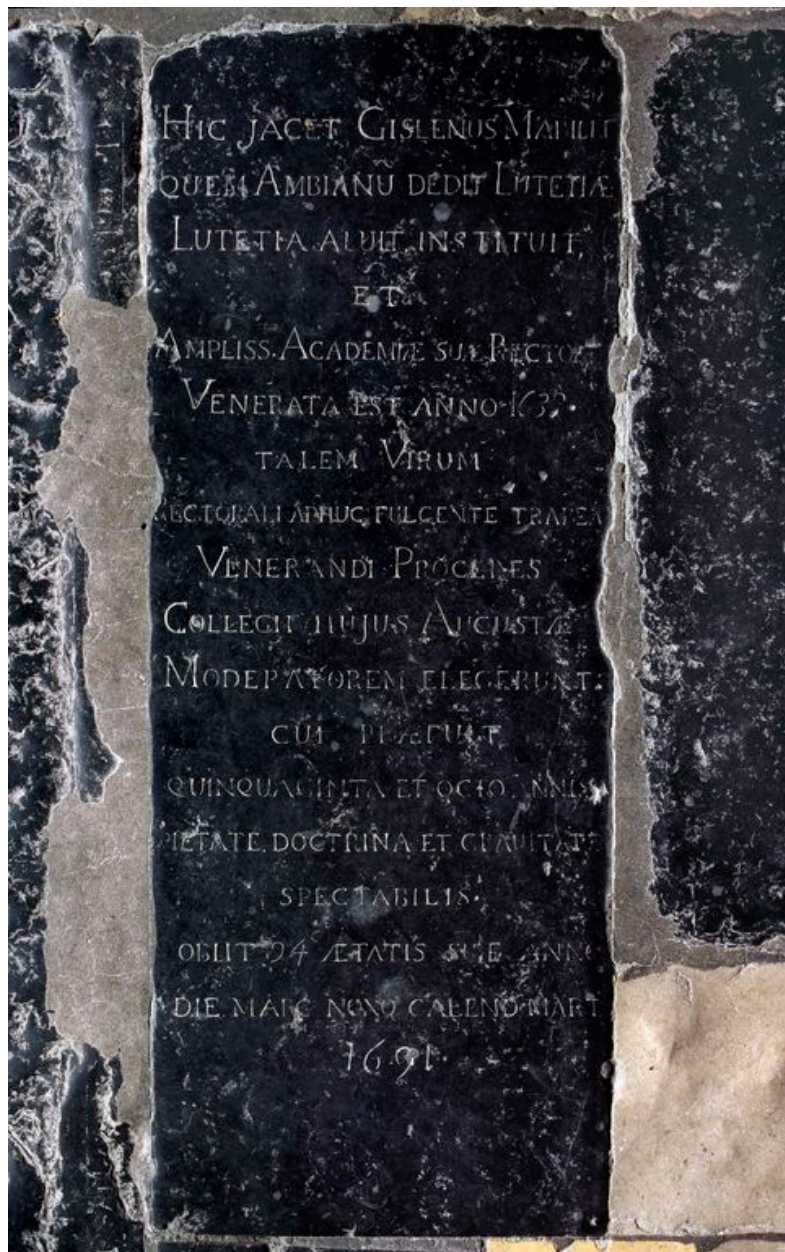 HIC JACET GISLENUS
QUEM AMBIANU DEDIT LUTETIÆ
LUTETIA ALUIT, INSTITUIT,
ET
AMPLISS. ACADEMIÆ SUÆ RECTOR
VENERATA EST ANNO
TALEM VIRUM
RECTORALI ADHUC FULGENTE TRABEA
VENERANDI PROCERES
COLLEGII HUJUS AUGUSTÆ
MODERATOREM ELEGERUNT:
CUI PRÆFUIT
QUINQUAGINTA ET OCTO ANNIS
PIETATE, DOCTRINA ET GRAVITATE
SPECTABILIS.
OBIIT 94 ÆTATIS SUÆ ANNO
DIE NONO CALEND MART
1691.